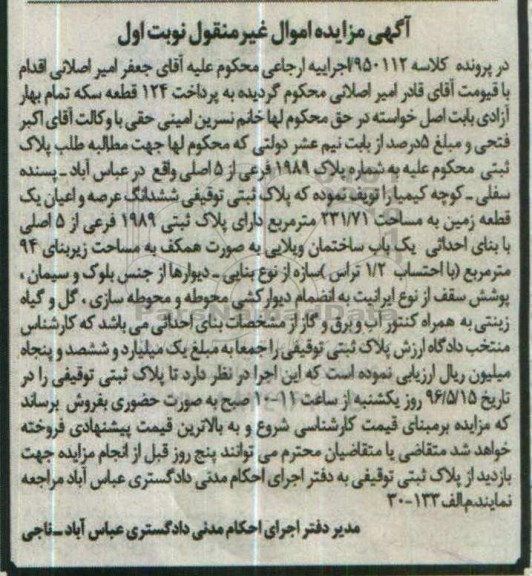 آگهی مزایده اموال غیرمنقول نوبت اول
در پرونده کلاسه ۹۵۰۱۱۲/اجراییه ارجاعی محکوم علیه آقای جعفر امیر اصلانی اقدام
با قیومت آقای قادر امیر اصلانی محکوم گردیده به پرداخت ۱۲۴ قطعه سکه تمام بهار
آزادی بابت اصل خواسته در حق محکوم لها خانم نسرین امینی حقی با وکالت آقای اکبر
فتحی و مبلغ ۵درصد از بابت نیم عشر دولتی که محکوم لها جهت مطالبه طلب پلاک
ثبتی محکوم علیه به شماره پلاک ۱۹۸۹ فرعی از ۵ اصلی واقع در عباس آباد ـ پسنده
سفلی ـ کوچه کیمیا را توقیف نموده که پلاک ثبتی توقیفی ششدانگ عرصه و اعیان یک
قطعه زمین به مساحت ۲۳۱/۷۱ مترمربع دارای پلاک ثبتی ۱۹۸۹ فرعی از ۵ اصلی
با بنای احداثی یک باب ساختمان ویلایی به صورت همکف به مساحت زیربنای ۹۴
مترمربع (با احتساب ۱/۲ تراس )سازه از نوع بنایی ـ دیوارها از جنس بلوک و سیمان ،
پوشش سقف از نوع ایرانیت به انضمام دیوارکشی محوطه و محوطه سازی ، گل و گیاه
زینتی به همراه کنتور آب و برق و گاز از مشخصات بنای احداثی می باشد که کارشناس
منتخب دادگاه ارزش پلاک ثبتی توقیفی را جمعا به مبلغ یک میلیارد و ششصد و پنجاه
میلیون ریال ارزیابی نموده است که این اجرا در نظر دارد تا پلاک ثبتی توقیفی را در
تاریخ ۹۶/۵/۱۵ روز یکشنبه از ساعت ۱۱-۱۰ صبح به صورت حضوری بفروش برساند
که مزایده برمبنای قیمت کارشناسی شروع و به بالاترین قیمت پیشنهادی فروخته
خواهد شد متقاضی یا متقاضیان محترم می توانند پنج روز قبل از انجام مزایده جهت
بازدید از پلاک ثبتی توقیفی به دفتر اجرای احکام مدنی دادگستری عباس آباد مراجعه
نمایند.م/الف ۱۳۳-۳۰
مدیر دفتر اجرای احکام مدنی دادگستری عباس آباد ـ ناجی
ParsNamadData